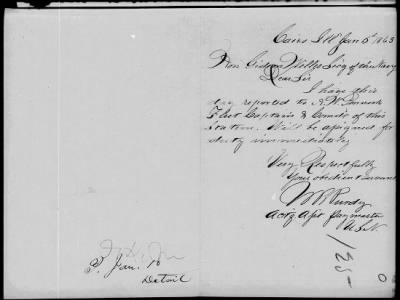 Cairo Ill Jan 5th 1863
Hon Gideon Welles Secy of the Navy
Dear Sir
I have this
day reported to A. W. Pennock
Fleet Captain & Comdr of this
Station. Will be assigned for
duty immediately
Very Respectfully
Your obedient Servant
Purdy
Actg Asst Paymaster
U.S.N.
135
Jan. 10
Detroit